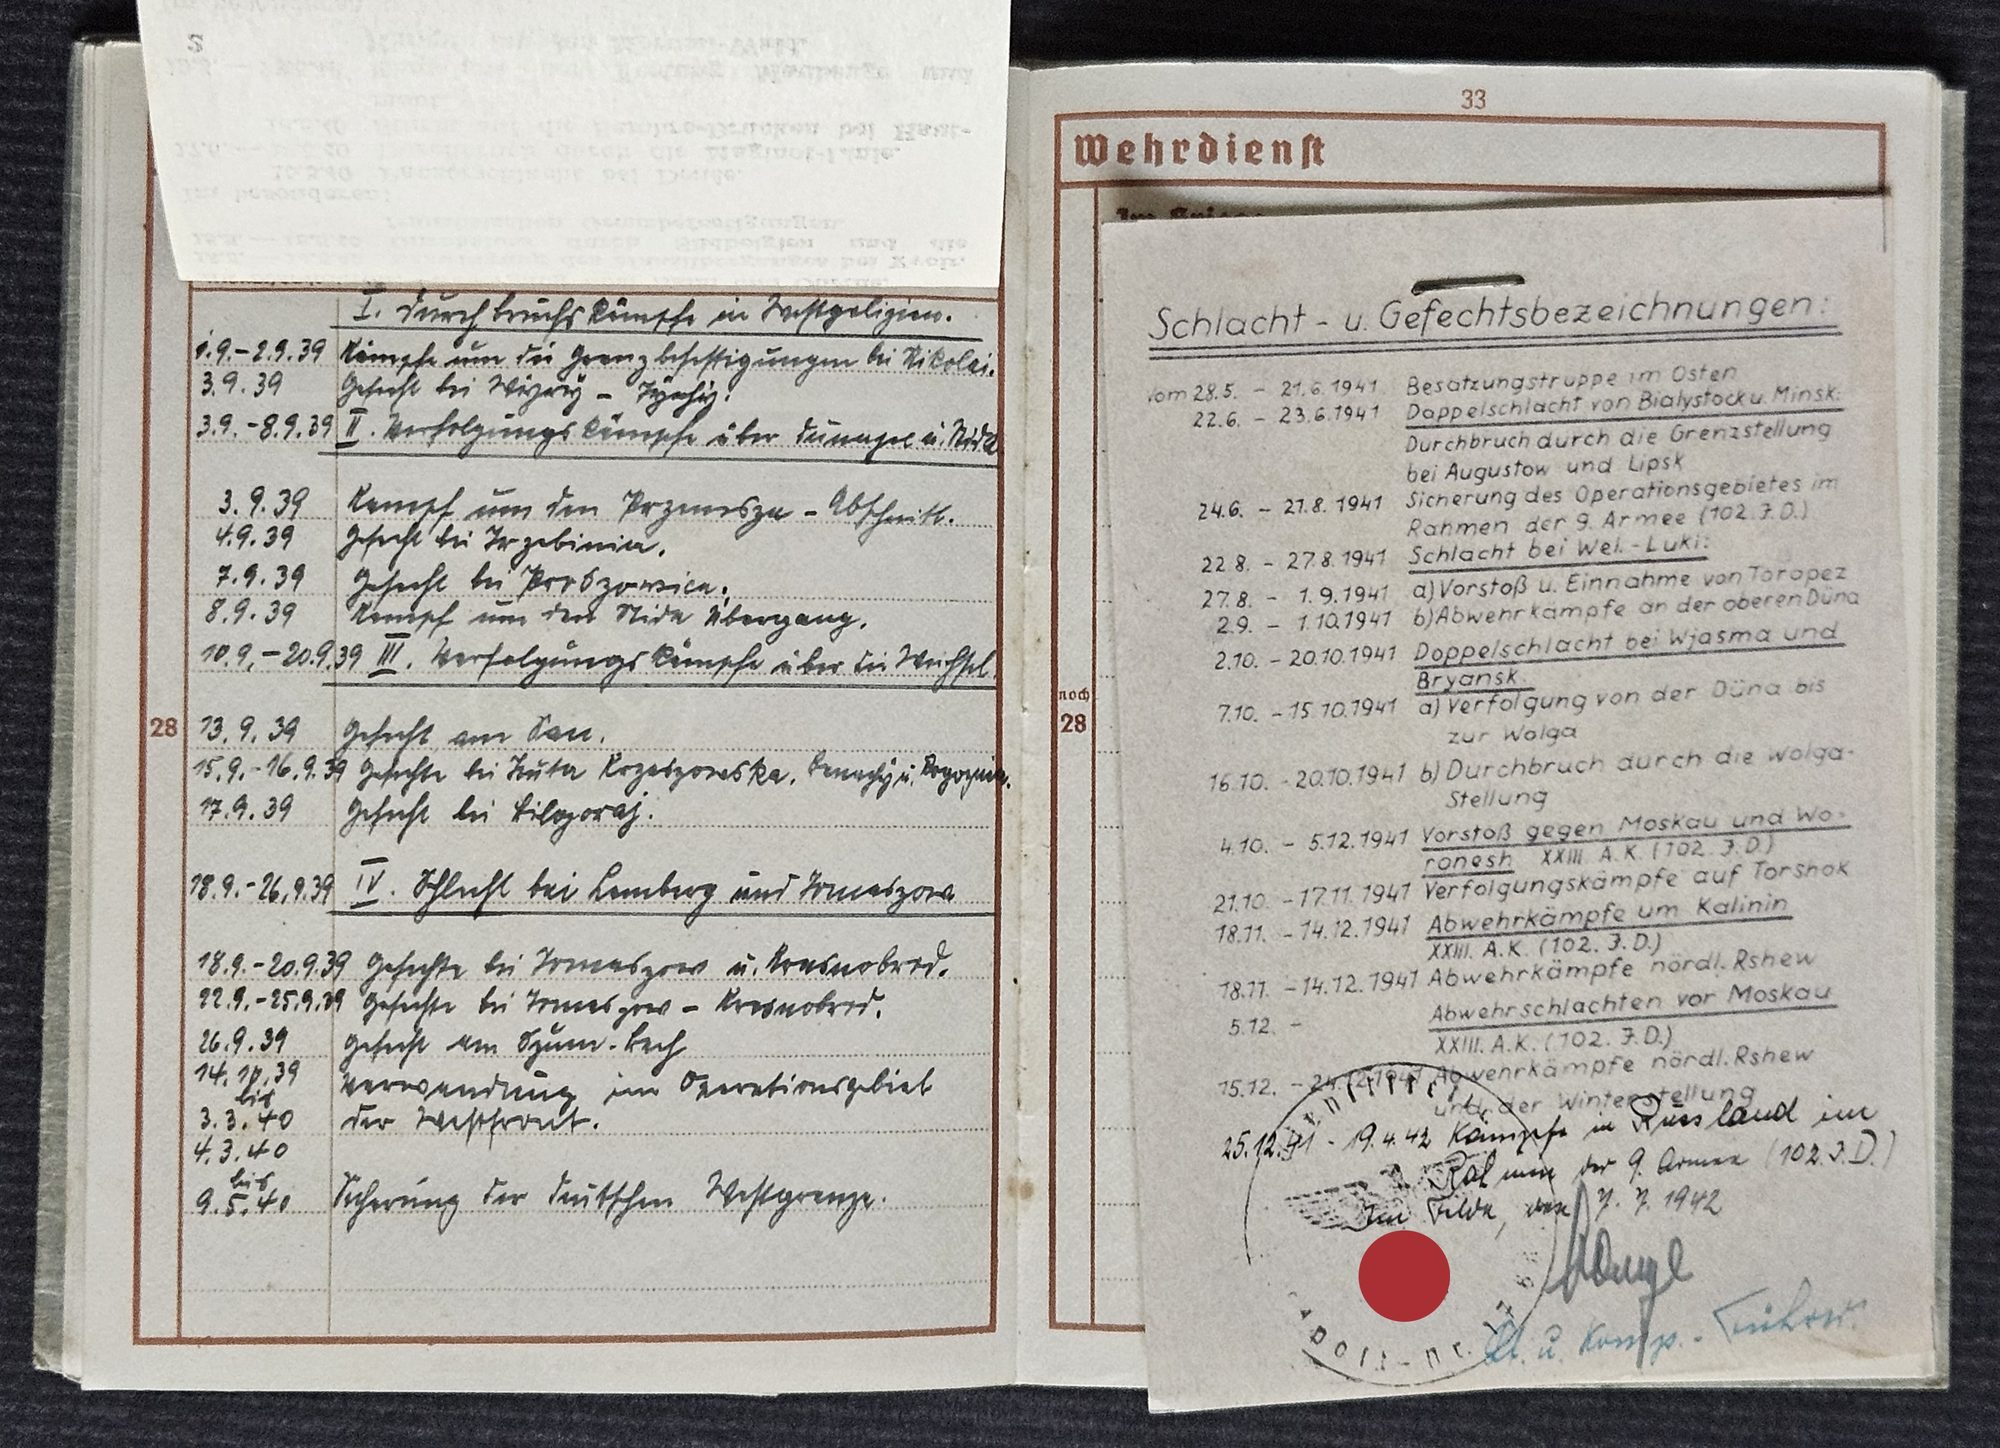 I. Durchbruchskämpfe in Westgalizien.
1.9.-2.9.39 Kämpfe um die Grenzbefestigungen bei Nikolai.
3.9.39 Gefecht bei Wyry - Tychy.
3.9.-8.9.39 II. Verfolgungskämpfe über Dunajec u. Nida
3.9.39 Kampf um den Przemsza - Abschnitt.
4.9.39 Gefecht bei Trzebinia.
7.9.39 Gefecht bei Proszowice.
8.9.39 Kampf um den Nida Übergang.
10.9.-20.9.39 III. Verfolgungskämpfe über die Weichsel.
28
13.9.39 Gefecht am San.
15.9.-16.9.39 Gefechte bei Huta Krzeszowska, Banachy u.
17.9.39 Gefecht bei Bilgoraj.
18.9.-26.9.39 IV. Schlacht bei Lemberg und Tomaszow
18.9.-20.9.39 Gefechte bei Tomaszow u. Krasnobrod.
22.9.-25.9.39 Gefechte bei Tomaszow - Krasnobrod.
26.9.39 Gefecht am Szum-Bach
14.10.39 Verwendung im Operationsgebiet
bis
3.3.40 der Westfront.
4.3.40
bis
9.5.40 Sicherung der deutschen Westgrenze.
33
Wehrdienst
noch
28
Schlacht- u. Gefechtsbezeichnungen:
vom 28.5. - 21.6.1941 Besatzungstruppe im Osten
22.6. - 23.6.1941 Doppelschlacht von Bialystock u. Minsk:
Durchbruch durch die Grenzstellung
bei Augustow und Lipsk
24.6. - 21.8.1941 Sicherung des Operationsgebietes im
Rahmen der 9. Armee (102. J.D.)
22.8. - 27.8.1941 Schlacht bei Wel.-Luki:
27.8. - 1.9.1941 a) Vorstoß u. Einnahme von Toropez
2.9. - 1.10.1941 b) Abwehrkämpfe an der oberen Düna
2.10. - 20.10.1941 Doppelschlacht bei Wjasma und
Bryansk
7.10. - 15.10.1941 a) Verfolgung von der Düna bis
zur Wolga
16.10. - 20.10.1941 b) Durchbruch durch die Wolga-
Stellung
4.10. - 5.12.1941 Vorstoß gegen Moskau und Wo-
ronesh XXIII. A.K. (102. J.D.)
21.10. - 17.11.1941 Verfolgungskämpfe auf Torshok
18.11. - 14.12.1941 Abwehrkämpfe um Kalinin
XXIII. A.K. (102. J.D.)
18.11. - 14.12.1941 Abwehrkämpfe nördl. Rshew
5.12. - Abwehrschlachten vor Moskau
XXIII. A.K. (102. J.D.)
15.12. - 24.12.1941 Abwehrkämpfe nördl. Rshew
und der Winterstellung
25.12.41 - 19.4.42 Kämpfe in Russland im
Rahmen der 9. Armee (102. J.D.)
Im Felde, den 7. 7. 1942
Lt. u. Komp.-Führer.